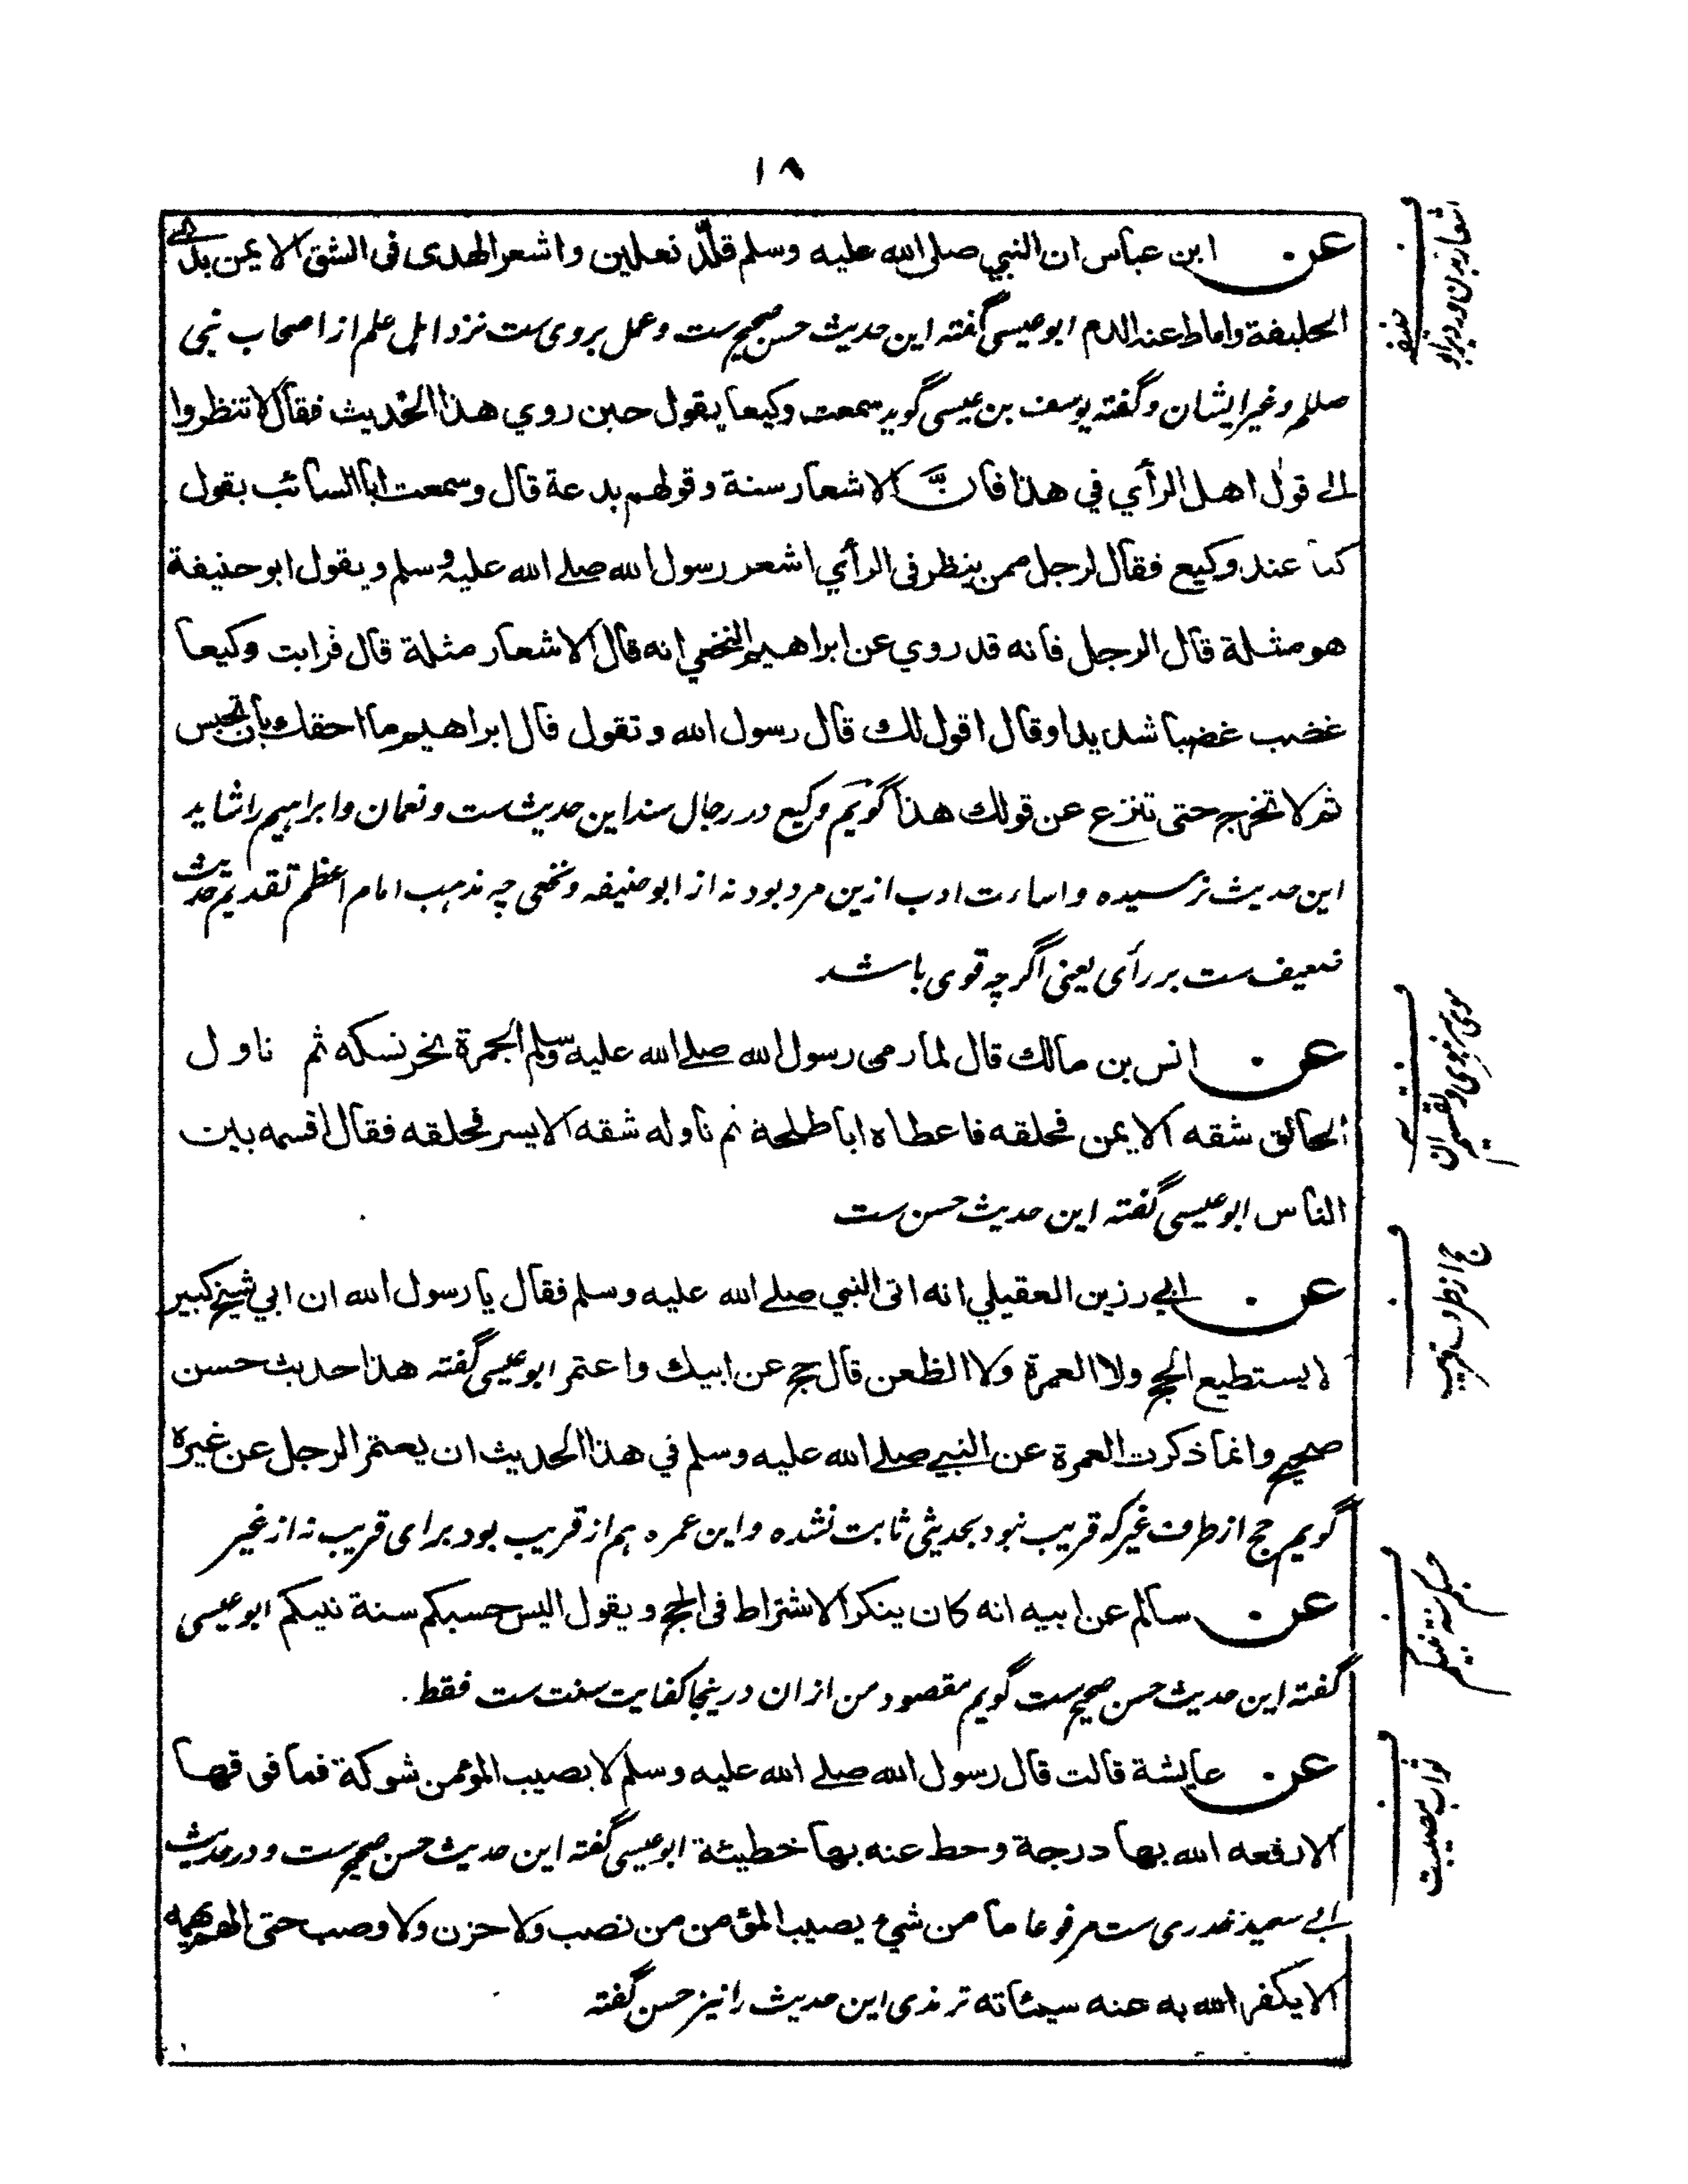 ١٨
عن ابن عباس ان النبي صلى الله عليه وسلم قلّد نعلين واشعر الهدى فى الشق الايمن بذى
الحليفة واماط عنه الدم ابو عيسى گفته اين حديث حسن صحيح ست وعمل بروى ست نزد اهل علم از اصحاب نبى
صللم وغير ايشان وگفته يوسف بن عيسى گويد سمعت وكيعا يقول حين روي هذا الحديث فقال لا تنظروا
الى قول اهل الرأي في هذا فانَّ الاشعار سنة وقولهم بدعة قال وسمعت ابا السائب يقول
كنا عند وكيع فقال لرجل ممن ينظر فى الرأي اشعر رسول الله صلے الله عليه وسلم ويقول ابو حنيفة
هو مثلة قال الرجل فانه قد روي عن ابراهيم النخعي انه قال الاشعار مثلة قال فرايت وكيعا
غضب غضبا شديدا وقال اقول لك قال رسول الله وتقول قال ابراهيم ما احقك بان تحبس
ثم لا تخرج حتى تنزع عن قولك هذا گويم وكيع در رجال سند اين حديث ست ونعمان وابراهيم را شايد
اين حديث نرسيده واساءت ادب ازين مرد بود نه از ابو حنيفه ونخعى چه مذهب امام اعظم تقديم حديث
ضعيف ست بر رأى يعنى اگرچه قوى باشد
عن انس بن مالك قال لما رمى رسول الله صلے الله عليه وسلم الجمرة نحر نسكه ثم ناول
الحالق شقه الايمن فحلقه فاعطاه ابا طلحة ثم ناوله شقه الايسر فحلقه فقال اقسمه بين
الناس ابو عيسى گفته اين حديث حسن ست
عن ابي رزين العقيلي انه اتى النبي صلے الله عليه وسلم فقال يا رسول الله ان ابي شيخ كبير
لا يستطيع الحج ولا العمرة ولا الظعن قال حج عن ابيك واعتمر ابو عيسى گفته هذا حديث حسن
صحيح وانما ذكرت العمرة عن النبي صلے الله عليه وسلم في هذا الحديث ان يعتمر الرجل عن غيره
گويم حج از طرف غير كه قريب نبود بحديثى ثابت نشده واين عمره هم از قريب بود براى قريب نه از غير
عن سالم عن ابيه انه كان ينكر الاشتراط فى الحج ويقول اليس حسبكم سنة نبيكم ابو عيسى
گفته اين حديث حسن صحيح ست گويم مقصود من ازان درينجا كفايت سنت ست فقط.
عن عايشة قالت قال رسول الله صلے الله عليه وسلم لا يصيب المؤمن شوكة فما فوقها
الا رفعه الله بها درجة وحط عنه بها خطيئة ابو عيسى گفته اين حديث حسن صحيح ست ودر حديث
ابى سعيد خدرى ست مرفوعا ما من شيء يصيب المؤمن من نصب ولا حزن ولا وصب حتى الهم يهمه
الا يكفر الله به عنه سيئاته ترمذى اين حديث را نيز حسن گفته
موى سر نبوى وتقسيم ان
حج از طرف قريب
حسبكم سنة نبيكم
ثواب مصيبت